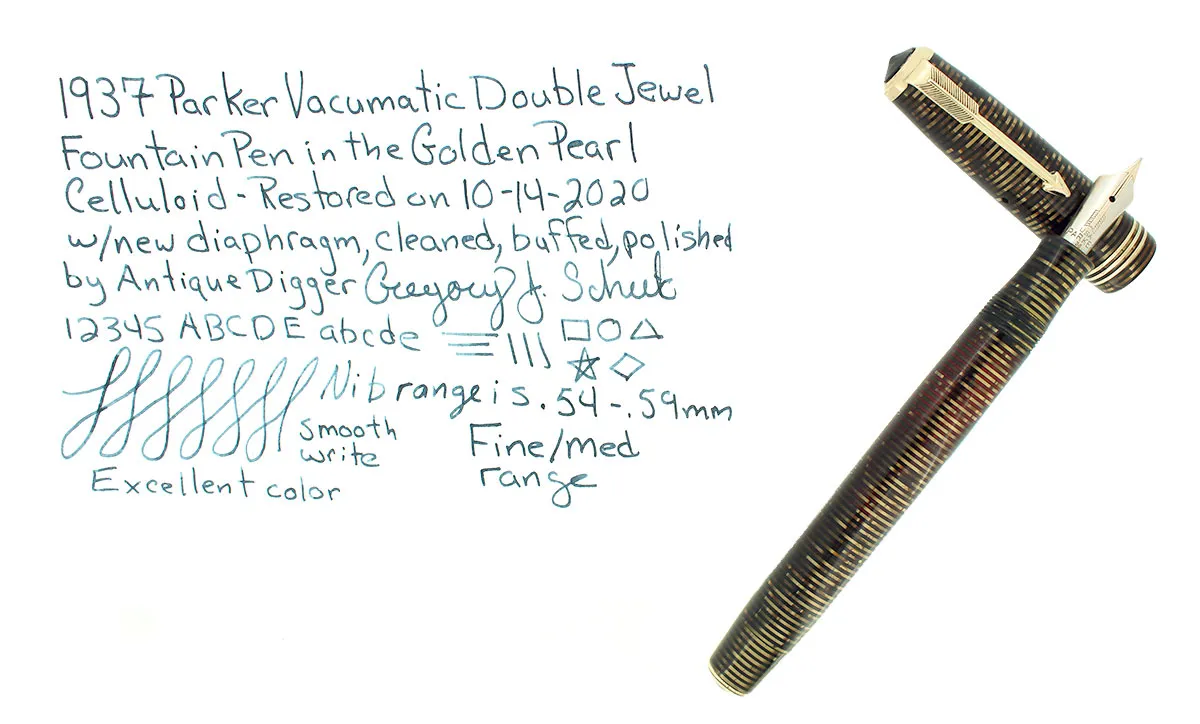 1937 Parker Vacumatic Double Jewel
Fountain Pen in the Golden Pearl
Celluloid - Restored on 10-14-2020
w/new diaphragm, cleaned, buffed, polished
by Antique Digger Gregory J.
12345 ABCDE abcde
Nib range is .54-.59mm
smooth
write
Fine/med
range
Excellent color
PARKER